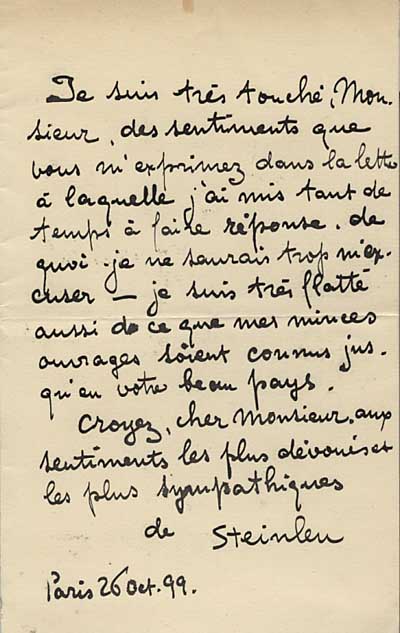 Je suis très touché, Mon-
sieur, des sentiments que
vous m'exprimez dans la lettre
à laquelle j'ai mis tant de
temps à faire réponse. de
quoi je ne saurais trop m'ex-
cuser — je suis très flatté
aussi de ce que mes minces
ouvrages soient connus jus-
qu'en votre beau pays.
Croyez, cher Monsieur, aux
sentiments les plus dévoués et
les plus sympathiques
de Steinlen
Paris 26 Oct. 99.